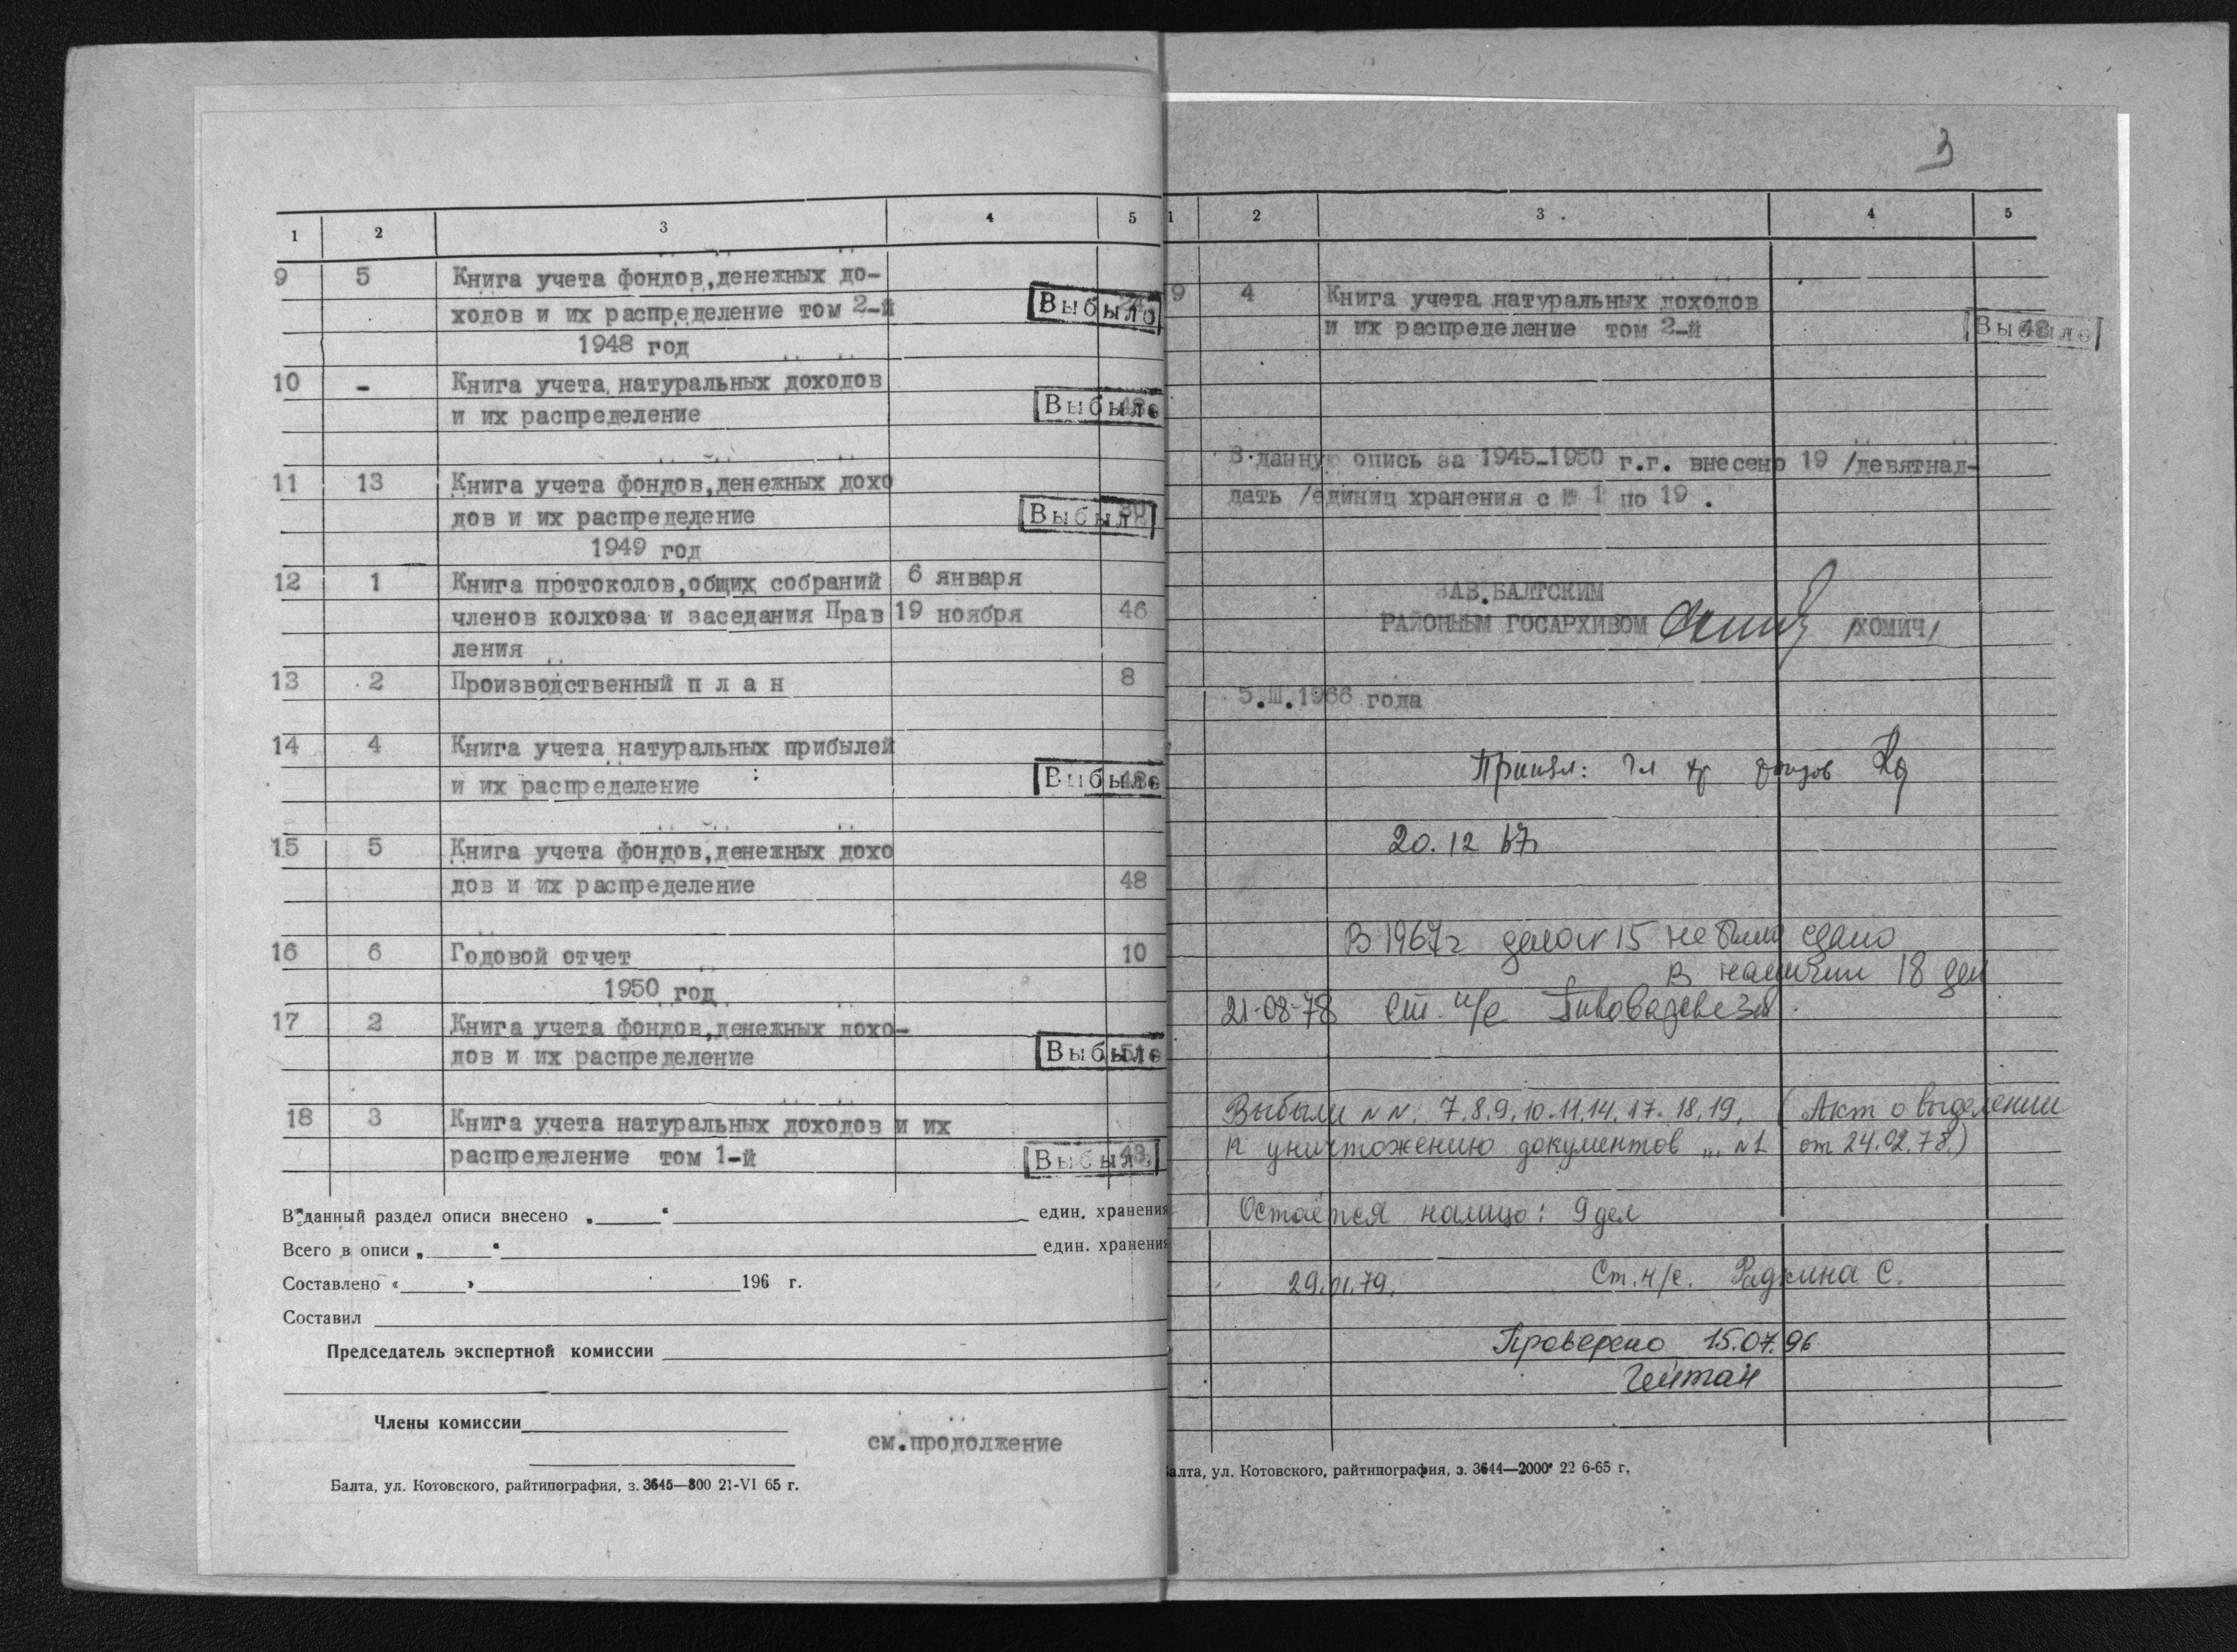 1 2 3 4 5
9 5 Книга учета фондов,денежных до-
ходов и их распределение том 2-й Выбыло
1948 год
10 - Книга учета натуральных доходов
и их распределение Выбыло
11 13 Книга учета фондов,денежных дохо
дов и их распределение Выбыло
1949 год
12 1 Книга протоколов,общих собраний 6 января
членов колхоза и заседания Прав 19 ноября 46
ления
13 2 Производственный п л а н 8
14 4 Книга учета натуральных прибылей
и их распределение Выбыло
15 5 Книга учета фондов,денежных дохо
дов и их распределение 48
16 6 Годовой отчет 10
1950 год
17 2 Книга учета фондов,денежных дохо-
дов и их распределение Выбыло
18 3 Книга учета натуральных доходов и их
распределение том 1-й Выбыло
В данный раздел описи внесено един. хранения
Всего в описи един. хранения
Составлено « » 196 г.
Составил
Председатель экспертной комиссии
Члены комиссии
см.продолжение
Балта, ул. Котовского, райтипография, з. 3645—800 21-VI 65 г.
3
1 2 3 4 5
9 4 Книга учета натуральных доходов
и их распределение том 2-й Выбыло
В данную опись за 1945-1950 г.г. внесено 19 /девятнад-
цать /единиц хранения с № 1 по 19 .
ЗАВ.БАЛТСКИМ
РАЙОННЫМ ГОСАРХИВОМ /ХОМИЧ/
5.III.1966 года
Принял: Гл хр фондов
20.12 67г
В 1967г дело № 15 не было сдано
В наличии 18 дел
21-08-78 Ст. н/с
Выбыли NN: 7.8.9.10.11.14.17.18.19. (Акт о выделении
к уничтожению документов ... №1 от 24.02.78.)
Остаётся налицо: 9 дел
29.01.79. Ст.н/с. Радкина С.
Проверено 15.07.96
алта, ул. Котовского, райтипография, з. 3644—2000 22 6-65 г.